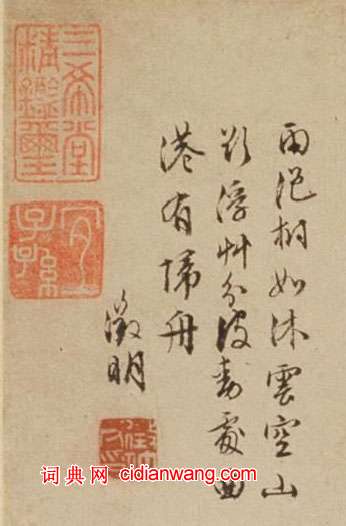 雨浥樹如沐雲空山
欲浮艸分波動處曲
港有歸舟
徵明
三希堂
精鑑璽
宜子孫
词典网 cidianwang.com